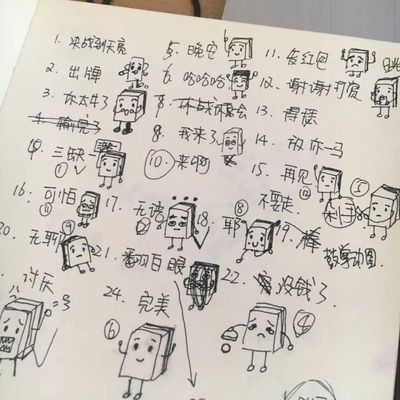 1. 决战到天亮
5. 晚安
11. 发红包
2. 出牌
6. 哈哈哈
12. 谢谢打赏
3. 你太牛了
7.
13. 得瑟
4.
8. 我来了
14. 放你一马
9. 三缺一
①
⑩ 来啊
15. 再见
⑫
⑤
16. 可怕
⑪
17. 无语
②
18. 耶
⑧
不要走
19. 棒
20. 无聊
⑨
21. 翻白眼
22. 没钱了
讨厌
24. 完美
⑥
④